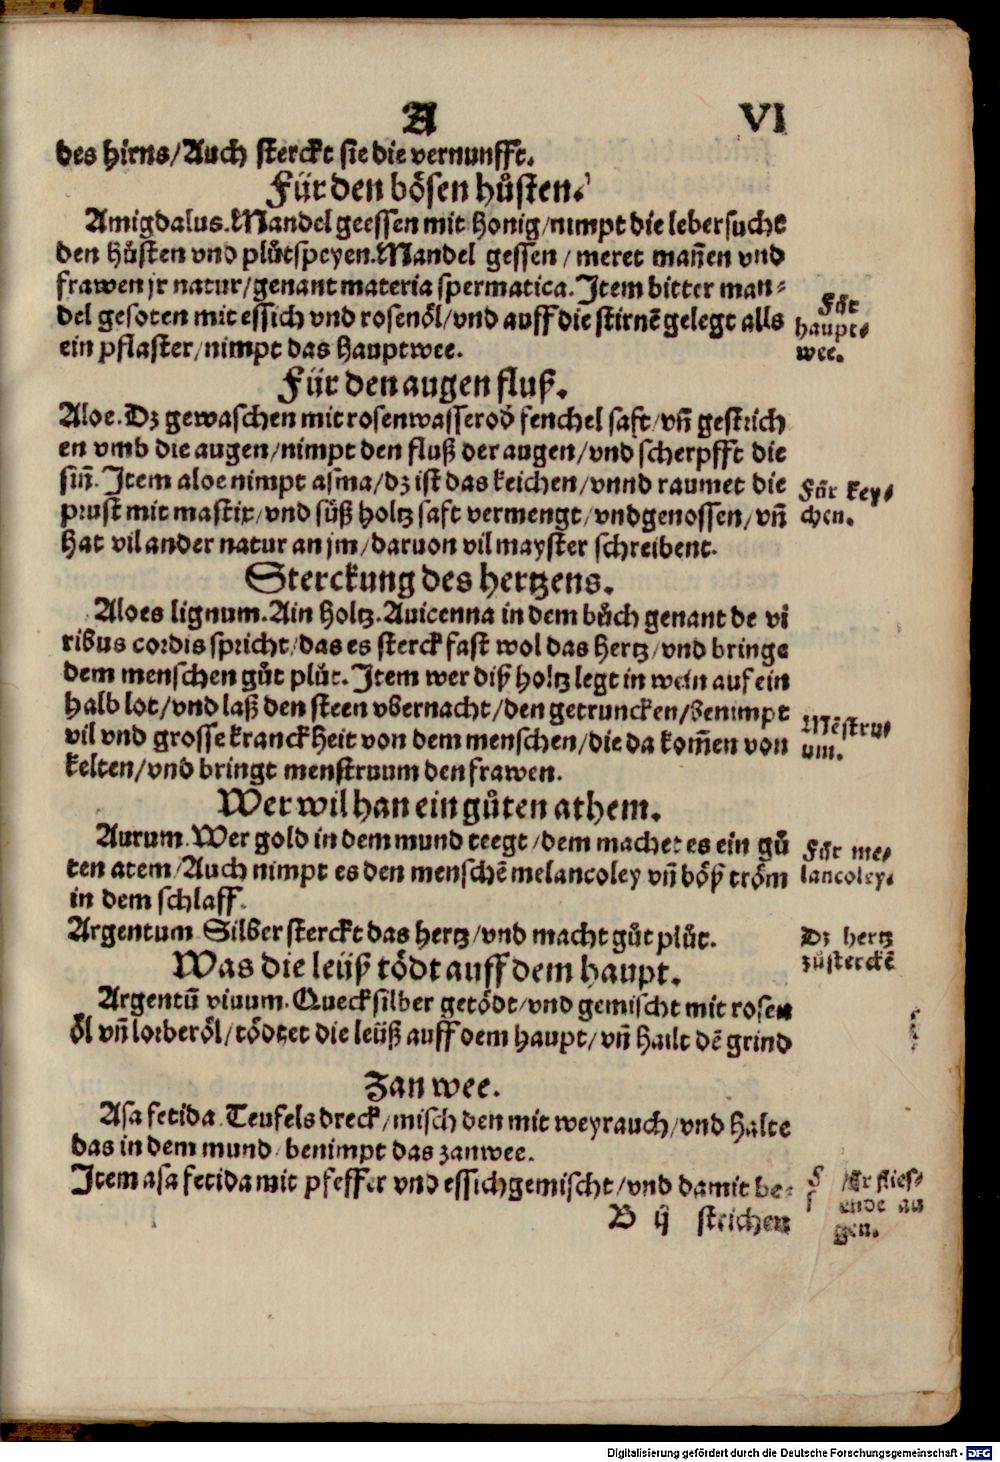 A VI
des hirns/Auch sterckt sie die vernunfft.
Für den bösen hůsten.
Amigdalus.Mandel geessen mit honig/nimpt die lebersucht
den hůsten vnd plůtspeyen.Mandel gessen/meret mañen vnd
frawen jr natur/genant materia spermatica.Item bitter man-
del gesoten mit essich vnd rosenöl/vnd auff die stirnē gelegt alls
Für
haupt-
wee.
ein pflaster/nimpt das hauptwee.
Für den augen fluß.
Aloe.Dz gewaschen mit rosenwasser oď fenchel saft/vñ gestrich
en vmb die augen/nimpt den fluß der augen/vnd scherpfft die
siñ.Item aloe nimpt asma/dz ist das keichen/vnnd raumet die
Für key-
chen.
prust mit mastix/vnd süß holtz saft vermengt/vnd genossen/vñ
hat vil ander natur an jm/daruon vil mayster schreibent.
Sterckung des hertzens.
Aloes lignum.Ain holtz.Auicenna in dem bůch genant de vi
ribus cordis spricht/das es sterck fast wol das hertz/vnd bringe
dem menschen gůt plůt.Item wer diß holtz legt in wein auf ein
halb lot/vnd laß den steen vbernacht/den getruncken/benimpt
Mēstru-
um.
vil vnd grosse kranckheit von dem menschen/die da kom̃en von
kelten/vnd bringt menstruum den frawen.
Wer wil han ein gůten athem.
Aurum.Wer gold in dem mund teegt/dem machet es ein gů
Für me-
lancoley.
ten atem/Auch nimpt es den menschē melancoley vñ böß tröm
in dem schlaff.
Argentum Silber sterckt das hertz/vnd macht gůt plůt.
Dz hertz
zůsterckē
Was die leüß tödt auff dem haupt.
Argentū viuum.Quecksilber getödt/vnd gemischt mit rosen
öl vñ lorberöl/tödtet die leüß auff dem haupt/vñ hailt dē grind
Zan wee.
Asa fetida.Teufels dreck/misch den mit weyrauch/vnd halte
das in dem mund/benimpt das zanwee.
Item asa fetida mit pfeffer vnd essich gemischt/vnd damit be-
Für flies-
ende au
gen.
B ij strichen
Digitalisierung gefördert durch die Deutsche Forschungsgemeinschaft - DFG